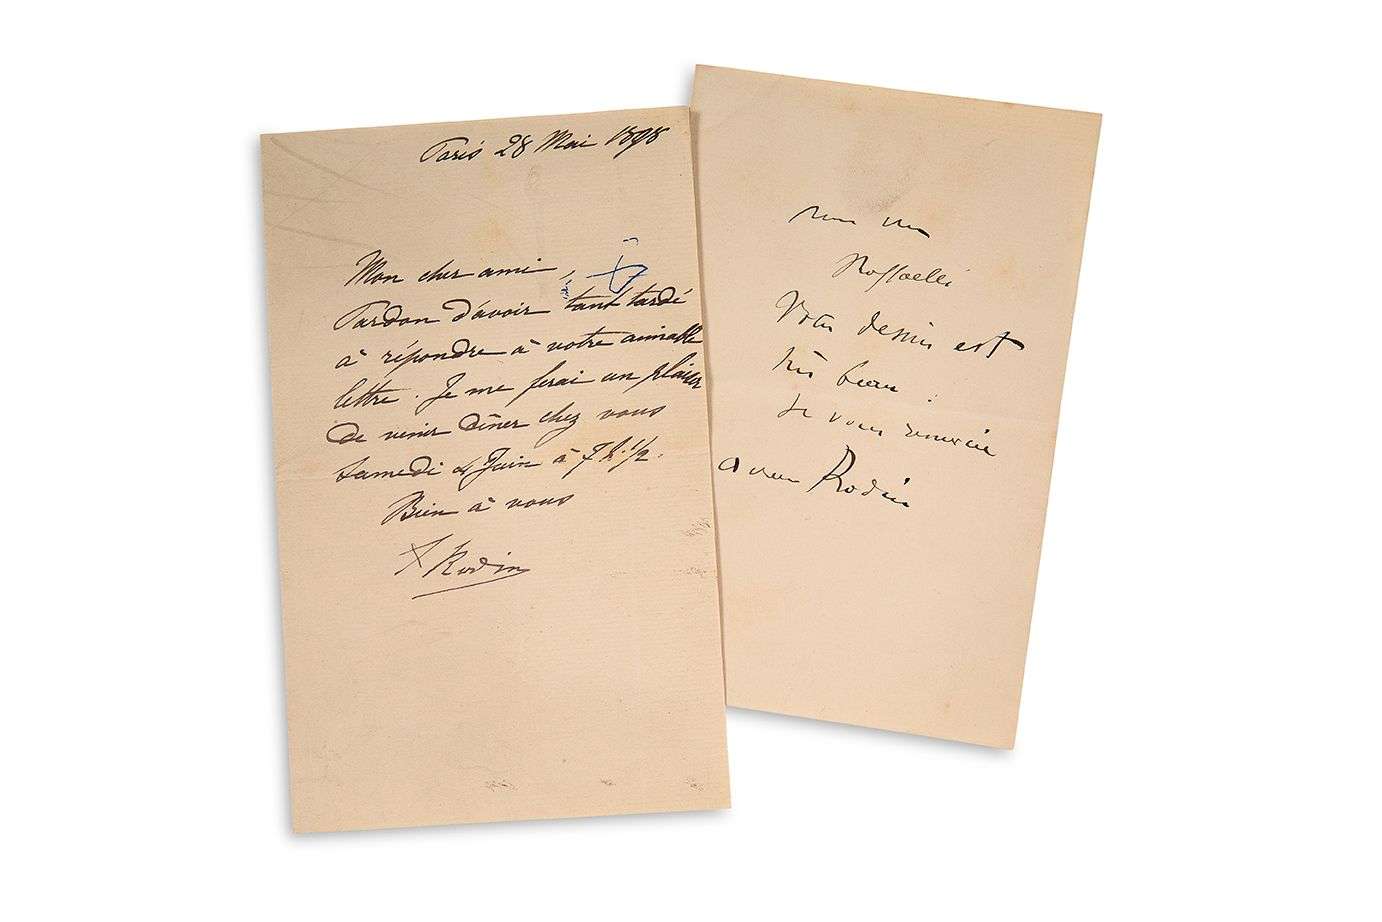 Paris 28 Mai 1898
Mon cher ami,
Pardon d'avoir tant tardé
à répondre à votre aimable
lettre. Je me ferai un plaisir
de venir dîner chez vous
Samedi 4 Juin à 7h. 1/2.
Bien à vous
A Rodin
Raffaelli
Votre dessin est
très beau.
Je vous remercie
Rodin